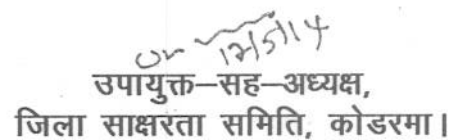 12/5/14
उपायुक्त–सह–अध्यक्ष,
जिला साक्षरता समिति, कोडरमा।